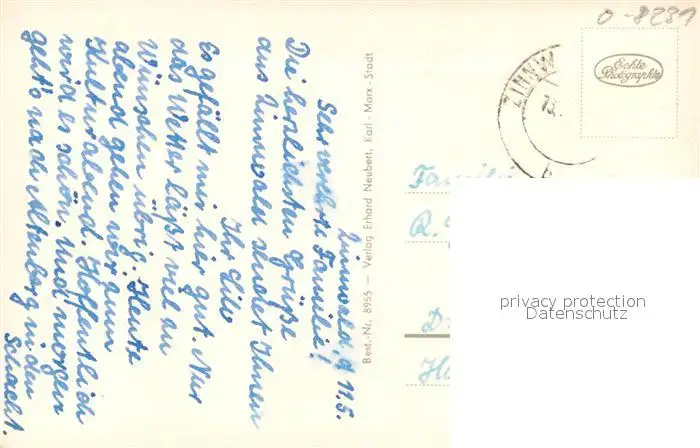 Zinnwald, d. 11.5.
Sehr verehrte Familie!
Die herzlichsten Grüße
aus Zinnwald sendet Ihnen
Ihr Lilo
Es gefällt mir hier gut. Nur
das Wetter läßt viel zu
Wünschen übrig. Heute
abend gehen wir zum
Kulturabend. Hoffentlich
wird es schön. Und morgen
geht's nach Altenberg in den
Schacht.
Best.-Nr. 8955 — Verlag Erhard Neubert, Karl-Marx-Stadt
O-8231
ZINNW
Echte
Photographie
Familie
R.
D
privacy protection
Datenschutz